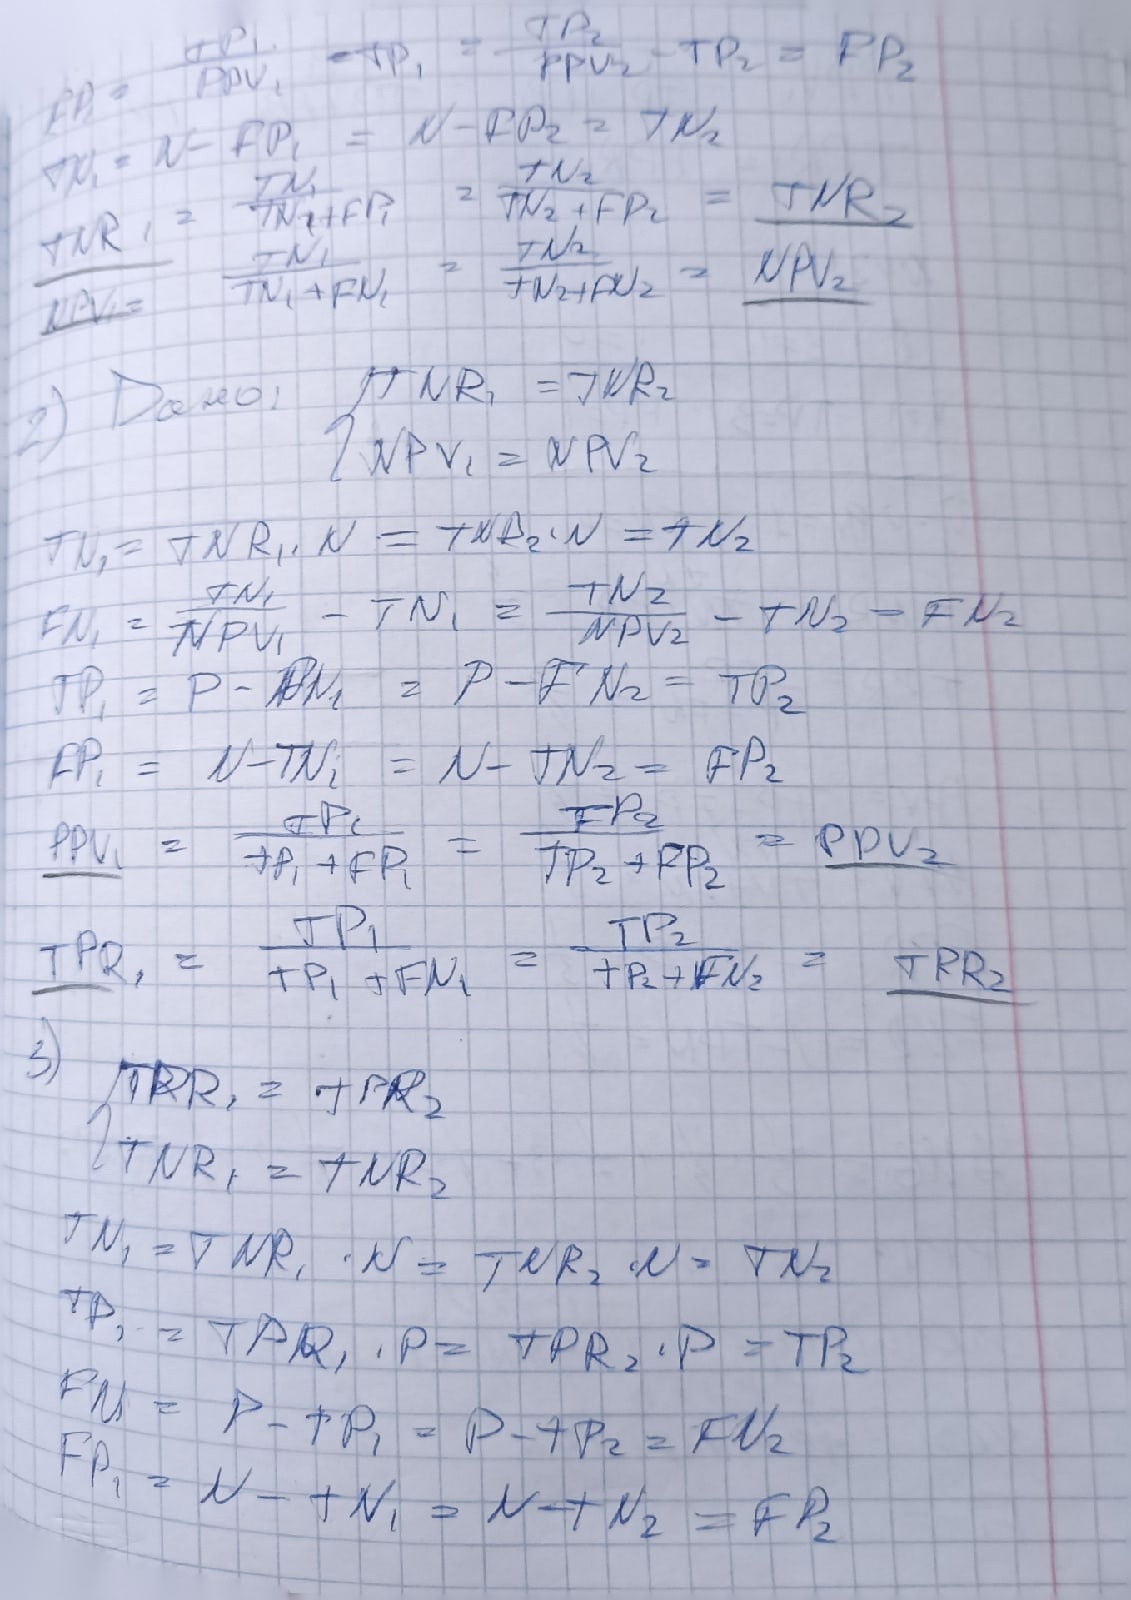 FP₁ = TP₁/PPV₁ - TP₁ = TP₂/PPV₂ - TP₂ = FP₂
TN₁ = N - FP₁ = N - FP₂ = TN₂
TNR₁ = TN₁/(TN₁+FP₁) = TN₂/(TN₂+FP₂) = TNR₂
NPV₁ = TN₁/(TN₁+FN₁) = TN₂/(TN₂+FN₂) = NPV₂
2) Дано: { TNR₁ = TNR₂
NPV₁ = NPV₂
TN₁ = TNR₁·N = TNR₂·N = TN₂
FN₁ = TN₁/NPV₁ - TN₁ = TN₂/NPV₂ - TN₂ = FN₂
TP₁ = P - FN₁ = P - FN₂ = TP₂
FP₁ = N - TN₁ = N - TN₂ = FP₂
PPV₁ = TP₁/(TP₁+FP₁) = TP₂/(TP₂+FP₂) = PPV₂
TPR₁ = TP₁/(TP₁+FN₁) = TP₂/(TP₂+FN₂) = TPR₂
3) { TPR₁ = TPR₂
TNR₁ = TNR₂
TN₁ = TNR₁·N = TNR₂·N = TN₂
TP₁ = TPR₁·P = TPR₂·P = TP₂
FN₁ = P - TP₁ = P - TP₂ = FN₂
FP₁ = N - TN₁ = N - TN₂ = FP₂